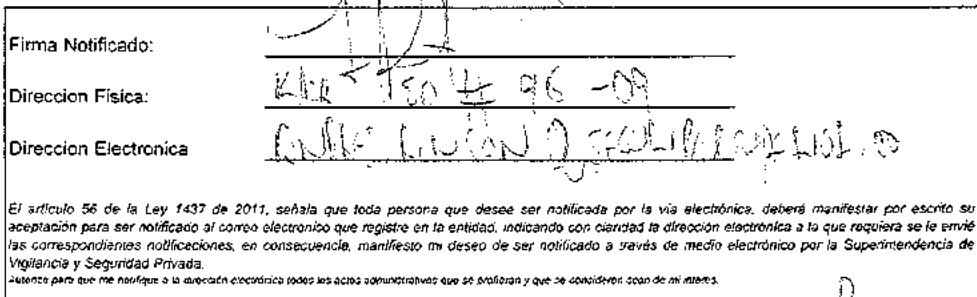 Firma Notificado:
Direccion Fisica: # 96 - 09
Direccion Electronica
El artículo 56 de la Ley 1437 de 2011, señala que toda persona que desee ser notificada por la vía electrónica, deberá manifestar por escrito su
aceptación para ser notificado al correo electrónico que registre en la entidad, indicando con claridad la dirección electrónica a la que requiera se le envíe
las correspondientes notificaciones, en consecuencia, manifiesto mi deseo de ser notificado a través de medio electrónico por la Superintendencia de
Vigilancia y Seguridad Privada.
Autorizo para que me notifique a la dirección electrónica todos los actos administrativos que se profieran y que se consideren sean de mi interés.